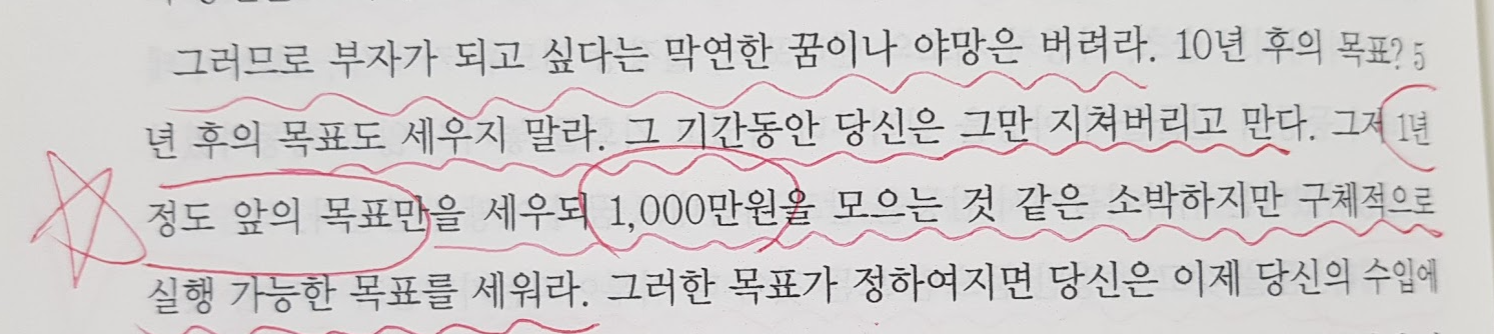 그러므로 부자가 되고 싶다는 막연한 꿈이나 야망은 버려라. 10년 후의 목표? 5
년 후의 목표도 세우지 말라. 그 기간동안 당신은 그만 지쳐버리고 만다. 그저 1년
정도 앞의 목표만을 세우되 1,000만원을 모으는 것 같은 소박하지만 구체적으로
실행 가능한 목표를 세워라. 그러한 목표가 정하여지면 당신은 이제 당신의 수입에